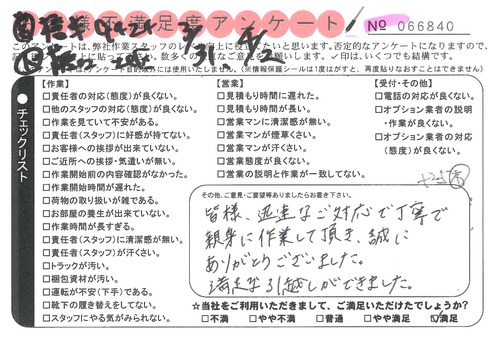 お客様不満足度アンケート
№ 066840
このアンケートは、弊社作業スタッフのレ
向上に役立てたいと思います。否定的なアンケートになりますので、
✓印は、いくつでも結構です。
(※情報保護シールは1度はがすと、再度貼りなおすことはできません)
チェックリスト
【作業】
□責任者の対応(態度)が良くない。
□他のスタッフの対応(態度)が良くない。
□作業を見ていて不安がある。
□責任者(スタッフ)に好感が持てない。
□お客様への挨拶が出来ていない。
□ご近所への挨拶・気遣いが無い。
□作業開始前の内容確認がなかった。
□作業開始時間が遅れた。
□荷物の取り扱いが雑である。
□お部屋の養生が出来ていない。
□作業時間が長すぎる。
□責任者(スタッフ)に清潔感が無い。
□責任者(スタッフ)が汗くさい。
□トラックが汚い。
□梱包資材が汚い。
□運転が不安(下手)である。
□靴下の履き替えをしてない。
□スタッフにやる気がみられない。
【営業】
□見積もり時間に遅れた。
□見積もり時間が長い。
□営業マンに清潔感が無い。
□営業マンが煙草くさい。
□営業マンが汗くさい。
□営業態度が良くない。
□営業の説明と作業が一致してない。
【受付・その他】
□電話の対応が良くない。
□オプション業者の説明・作業が良くない。
□オプション業者の対応(態度)が良くない。
その他、ご意見・ご要望等ありましたらお書き下さい。
皆様、迅速なご対応で丁寧で
親身に作業して頂き、誠に
ありがとうございました。
満足な引越しができました。
☆当社をご利用いただきまして、ご満足いただけたでしょうか?
□不満 □やや不満 □普通 □やや満足 ☑満足